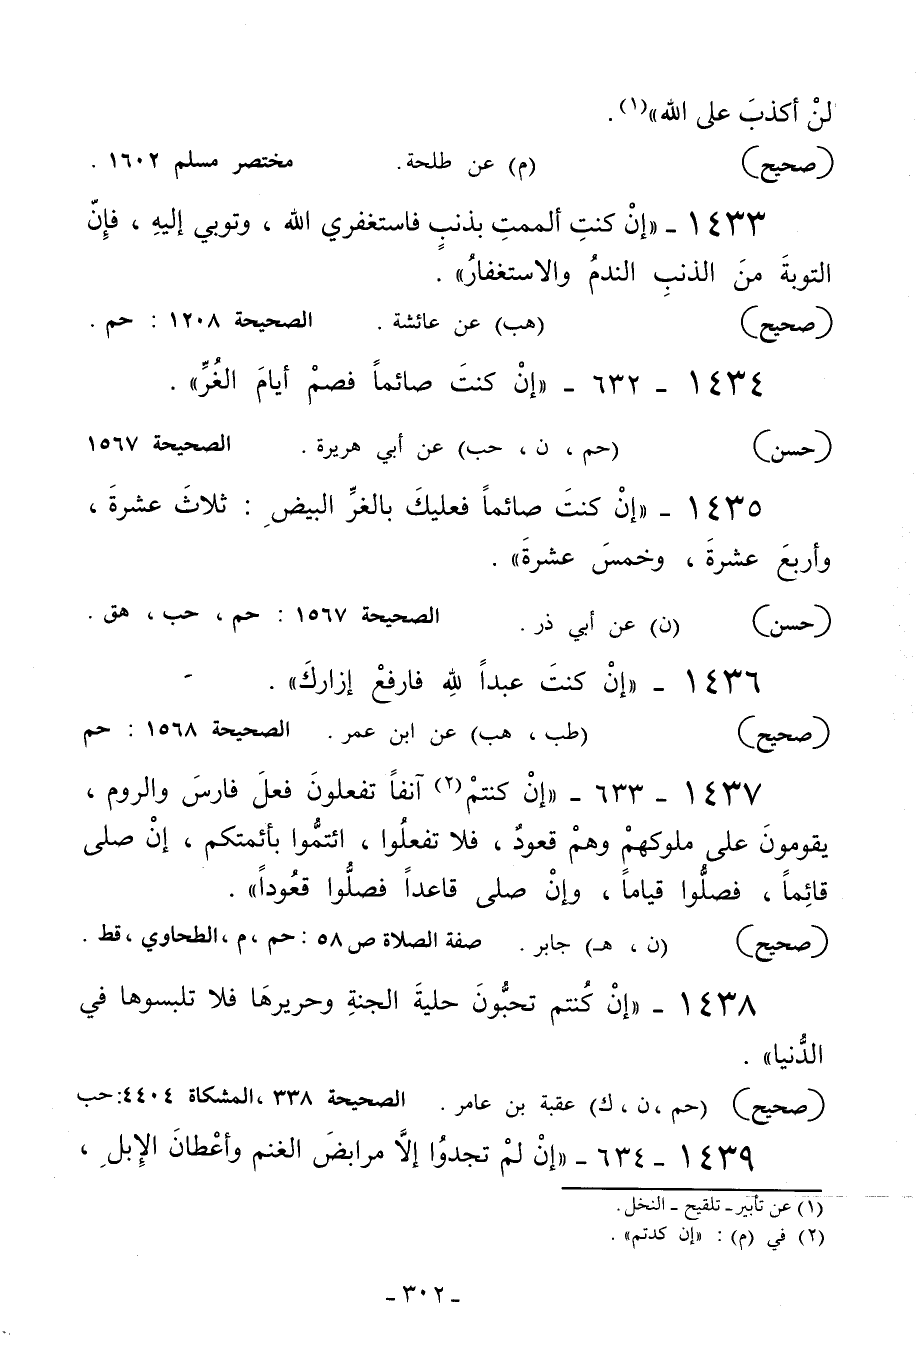 لنْ أكذبَ على الله»(١).
(صحيح) (م) عن طلحة. مختصر مسلم ١٦٠٢ .
١٤٣٣ ـ «إنْ كنتِ ألممتِ بذنبٍ فاستغفري الله ، وتوبي إليهِ ، فإنّ
التوبةَ منَ الذنبِ الندمُ والاستغفارُ» .
(صحيح) (هب) عن عائشة . الصحيحة ١٢٠٨ : حم .
١٤٣٤ ـ ٦٣٢ ـ «إنْ كنتَ صائماً فصمْ أيامَ الغُرِّ» .
(حسن) (حم ، ن ، حب) عن أبي هريرة . الصحيحة ١٥٦٧
١٤٣٥ ـ «إنْ كنتَ صائماً فعليكَ بالغرِّ البيضِ : ثلاثَ عشرةَ ،
وأربعَ عشرةَ ، وخمسَ عشرةَ» .
(حسن) (ن) عن أبي ذر . الصحيحة ١٥٦٧ : حم ، حب ، هق .
١٤٣٦ ـ «إنْ كنتَ عبداً للهِ فارفعْ إزاركَ» .
(صحيح) (طب ، هب) عن ابن عمر . الصحيحة ١٥٦٨ : حم
١٤٣٧ ـ ٦٣٣ ـ «إنْ كنتمْ(٢) آنفاً تفعلونَ فعلَ فارسَ والروم ،
يقومونَ على ملوكهمْ وهمْ قعودٌ ، فلا تفعلُوا ، ائتمُّوا بأئمتكم ، إنْ صلى
قائِماً ، فصلُّوا قياماً ، وإنْ صلى قاعداً فصلُّوا قعُوداً» .
(صحيح) (ن ، هـ) جابر . صفة الصلاة ص٥٨ : حم ،م ،الطحاوي ،قط .
١٤٣٨ ـ «إنْ كُنتم تحبُّونَ حليةَ الجنةِ وحريرهَا فلا تلبسوها في
الدُّنيا» .
(صحيح) (حم ،ن ،ك) عقبة بن عامر . الصحيحة ٣٣٨ ،المشكاة ٤٤٠٤:حب
١٤٣٩ ـ ٦٣٤ ـ «إنْ لمْ تجدوُا إلاَّ مرابضَ الغنم وأعْطانَ الإِبلِ ،
(١) عن تأبير ـ تلقيح ـ النخل.
(٢) في (م) : «إن كدتم» .
ـ ٣٠٢ ـ